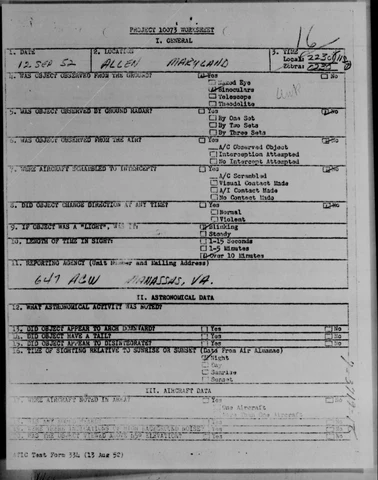 PROJECT 10073 WORKSHEET
I. GENERAL
1. DATE
12 SEP 52
2. LOCATION
ALLEN MARYLAND
3. TIME
Local:
Zebra:
16
4. WAS OBJECT OBSERVED FROM THE GROUND? Yes No
Naked Eye
Binoculars
Telescope
Theodolite
5. WAS OBJECT OBSERVED BY GROUND RADAR? Yes No
By One Set
By Two Sets
By Three Sets
6. WAS OBJECT OBSERVED FROM THE AIR? Yes No
A/C Observed Object
Interception Attempted
No Intercept Attempted
7. WERE AIRCRAFT SCRAMBLED TO INTERCEPT? Yes No
A/C Scrambled
Visual Contact Made
A/I Contact Made
No Contact Made
8. DID OBJECT CHANGE DIRECTION AT ANY TIME? Yes No
Normal
Violent
9. IF OBJECT WAS A "LIGHT", WAS IT: Blinking
Steady
10. LENGTH OF TIME IN SIGHT: 1-15 Seconds
1-5 Minutes
Over 10 Minutes
11. REPORTING AGENCY (Unit Number and Mailing Address)
647 ACW MANASSAS, VA.
II. ASTRONOMICAL DATA
12. WHAT ASTRONOMICAL ACTIVITY WAS NOTED?
13. DID OBJECT APPEAR TO ARCH DOWNWARD? Yes No
14. DID OBJECT HAVE A TAIL? Yes No
15. DID OBJECT APPEAR TO DISINTEGRATE? Yes No
16. TIME OF SIGHTING RELATIVE TO SUNRISE OR SUNSET (Data From Air Almanac)
Night
Day
Sunrise
Sunset
III. AIRCRAFT DATA
17. WERE AIRCRAFT NOTED IN AREA? Yes No
One Aircraft
More Than One Aircraft
ATIC Test Form 334 (13 Aug 52)